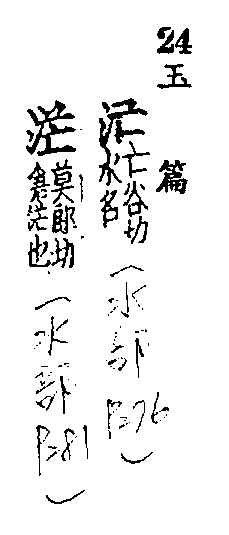 24 玉篇
汒 亡谷切 水名 (水部 P.76)
茫 莫郎切 滄茫也 (水部 P.81)